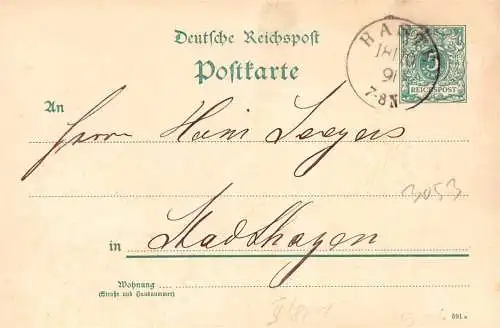 Deutsche Reichspost
Postkarte
HASTE
18/10
91
7-8N
5
REICHSPOST
An
Herrn Hein Seegers
3053
in Stadthagen
Wohnung
(Straße und Hausnummer)
891 a